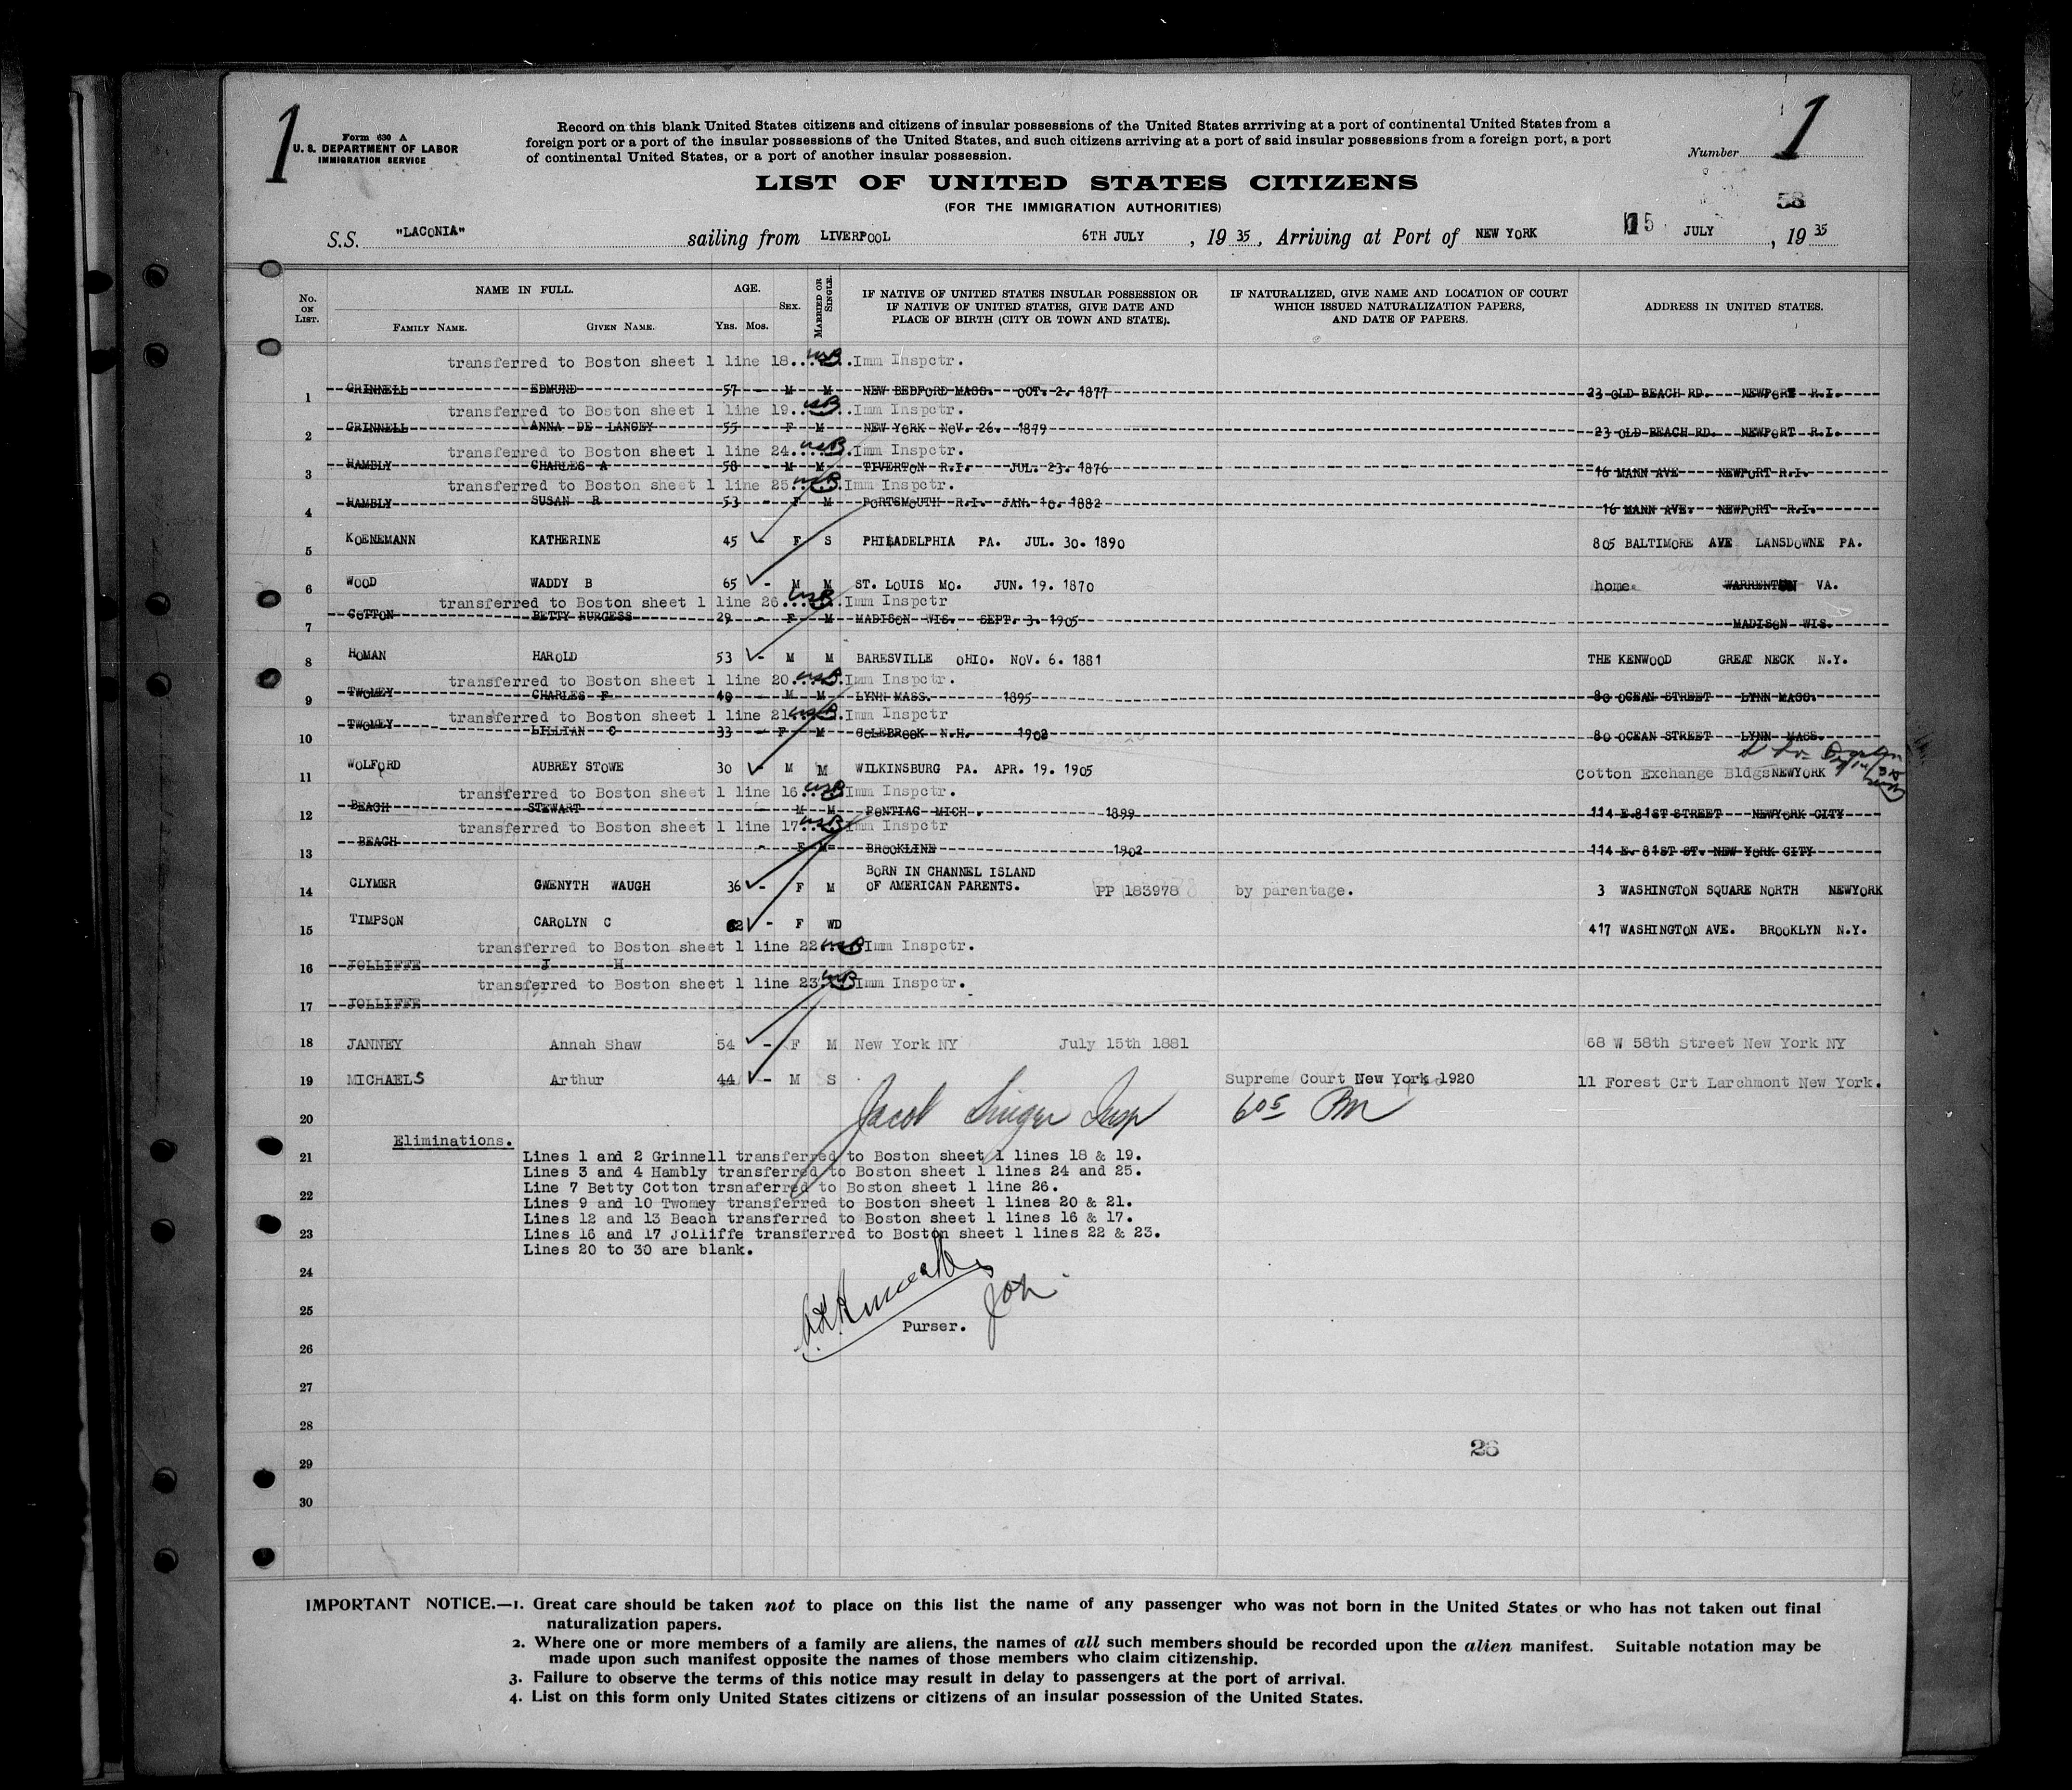 1
Form 630 A
U. S. DEPARTMENT OF LABOR
IMMIGRATION SERVICE
Record on this blank United States citizens and citizens of insular possessions of the United States arrriving at a port of continental United States from a
foreign port or a port of the insular possessions of the United States, and such citizens arriving at a port of said insular possessions from a foreign port, a port
of continental United States, or a port of another insular possession.
Number 1
LIST OF UNITED STATES CITIZENS
(FOR THE IMMIGRATION AUTHORITIES)
58
S.S. "LACONIA" sailing from LIVERPOOL 6TH JULY, 19 35, Arriving at Port of NEW YORK 15 JULY, 19 35
No. ON LIST. NAME IN FULL. FAMILY NAME. GIVEN NAME. AGE. Yrs. Mos. SEX. MARRIED OR SINGLE. IF NATIVE OF UNITED STATES INSULAR POSSESSION OR IF NATIVE OF UNITED STATES, GIVE DATE AND PLACE OF BIRTH (CITY OR TOWN AND STATE). IF NATURALIZED, GIVE NAME AND LOCATION OF COURT WHICH ISSUED NATURALIZATION PAPERS, AND DATE OF PAPERS. ADDRESS IN UNITED STATES.
transferred to Boston sheet 1 line 18 Imm Inspctr.
1 GRINNELL EDMUND 57 - M M NEW BEDFORD MASS. OCT. 2. 1877 23 OLD BEACH RD. NEWPORT R.I.
transferred to Boston sheet 1 line 19 Imm Inspctr.
2 GRINNELL ANNA DE LANCEY 55 - F M NEW YORK NOV. 26. 1879 23 OLD BEACH RD. NEWPORT R.I.
transferred to Boston sheet 1 line 24 Imm Inspctr.
3 HAMBLY CHARLES A 58 - M M TIVERTON R.I. JUL. 23. 1876 16 MANN AVE NEWPORT R.I.
transferred to Boston sheet 1 line 25 Imm Inspctr.
4 HAMBLY SUSAN R 53 - F M PORTSMOUTH R.I. JAN. 10. 1882 16 MANN AVE. NEWPORT R.I.
5 KOENEMANN KATHERINE 45 - F S PHILADELPHIA PA. JUL. 30. 1890 805 BALTIMORE AVE LANSDOWNE PA.
6 WOOD WADDY B 65 - M M ST. LOUIS MO. JUN. 19. 1870 home WARRENTON VA.
transferred to Boston sheet 1 line 26 Imm Inspctr
7 COTTON BETTY BURGESS 29 - F M MADISON WIS. SEPT. 3. 1905 MADISON WIS.
8 HOMAN HAROLD 53 - M M BARESVILLE OHIO. NOV. 6. 1881 THE KENWOOD GREAT NECK N.Y.
transferred to Boston sheet 1 line 20 Imm Inspctr.
9 TWOMEY CHARLES F 40 - M M LYNN MASS. 1895 80 OCEAN STREET LYNN MASS.
transferred to Boston sheet 1 line 21 Imm Inspctr
10 TWOMEY LILLIAN C 33 - F M COLEBROOK N.H. 1902 80 OCEAN STREET LYNN MASS.
11 WOLFORD AUBREY STOWE 30 - M M WILKINSBURG PA. APR. 19. 1905 Cotton Exchange Bldgs NEWYORK
transferred to Boston sheet 1 line 16 Imm Inspctr.
12 BEACH STEWART M M PONTIAC MICH. 1899 114 E.81ST STREET NEWYORK CITY
transferred to Boston sheet 1 line 17 Imm Inspctr
13 BEACH - F M BROOKLINE 1902 114 E. 81ST ST. NEW YORK CITY
BORN IN CHANNEL ISLAND
14 CLYMER GWENYTH WAUGH 36 - F M OF AMERICAN PARENTS. PP 183978 by parentage. 3 WASHINGTON SQUARE NORTH NEWYORK
15 TIMPSON CAROLYN C 62 - F WD 417 WASHINGTON AVE. BROOKLYN N.Y.
transferred to Boston sheet 1 line 22 Imm Inspctr.
16 JOLLIFFE J H
transferred to Boston sheet 1 line 23 Imm Inspctr.
17 JOLLIFFE
18 JANNEY Annah Shaw 54 - F M New York NY July 15th 1881 68 W 58th Street New York NY
19 MICHAELS Arthur 44 - M S Supreme Court New York 1920 11 Forest Crt Larchmont New York.
20 Jacob Singer Insp 6 05 PM
Eliminations.
21 Lines 1 and 2 Grinnell transferred to Boston sheet 1 lines 18 & 19.
Lines 3 and 4 Hambly transferred to Boston sheet 1 lines 24 and 25.
22 Line 7 Betty Cotton trsnaferred to Boston sheet 1 line 26.
Lines 9 and 10 Twomey transferred to Boston sheet 1 lines 20 & 21.
Lines 12 and 13 Beach transferred to Boston sheet 1 lines 16 & 17.
23 Lines 16 and 17 Jolliffe transferred to Boston sheet 1 lines 22 & 23.
Lines 20 to 30 are blank.
24
25 Purser.
26
27
28
26
29
30
IMPORTANT NOTICE.—1. Great care should be taken not to place on this list the name of any passenger who was not born in the United States or who has not taken out final
naturalization papers.
2. Where one or more members of a family are aliens, the names of all such members should be recorded upon the alien manifest. Suitable notation may be
made upon such manifest opposite the names of those members who claim citizenship.
3. Failure to observe the terms of this notice may result in delay to passengers at the port of arrival.
4. List on this form only United States citizens or citizens of an insular possession of the United States.